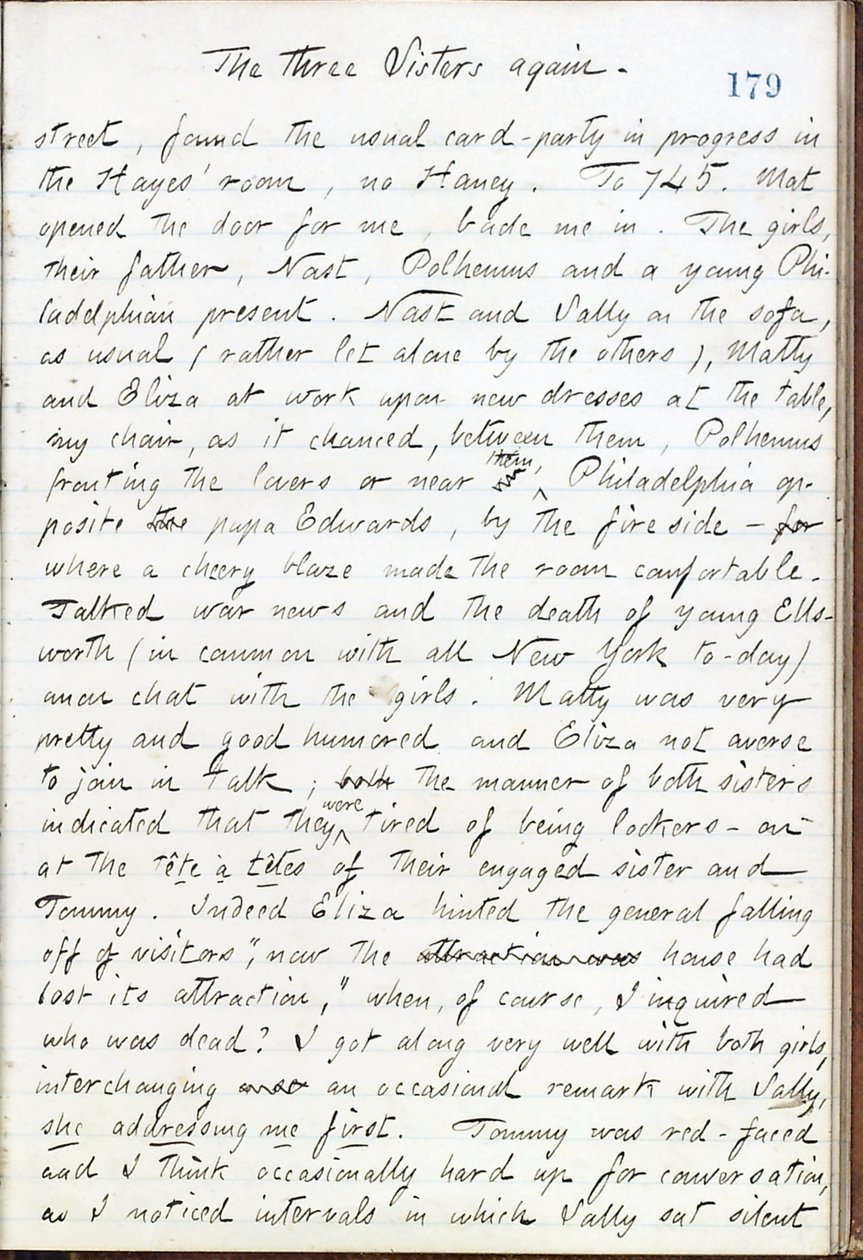 The three Sisters again.
179
street, found the usual card-party in progress in
the Hayes' room, no Haney. To 745. Mat
opened the door for me, bade me in. The girls,
their father, Nast, Polhemus and a young Phi-
ladelphian present. Nast and Sally on the sofa,
as usual (rather let alone by the others), Matty
and Eliza at work upon new dresses at the table,
my chair, as it chanced, between them, Polhemus
fronting the lovers or near them, Philadelphia op-
posite the papa Edwards, by the fireside - for
where a cheery blaze made the room comfortable.
Talked war news and the death of young Ells-
worth (in common with all New York to-day)
anon chat with the girls. Matty was very
pretty and good humored and Eliza not averse
to join in talk; both the manner of both sisters
indicated that they were tired of being lookers-on
at the tête à têtes of their engaged sister and
Tommy. Indeed Eliza hinted the general falling
off of visitors, "now the attraction was house had
lost its attraction," when, of course, I inquired
who was dead? I got along very well with both girls,
interchanging an occasional remark with Sally,
she addressing me first. Tommy was red-faced
and I think occasionally hard up for conversation,
as I noticed intervals in which Sally sat silent